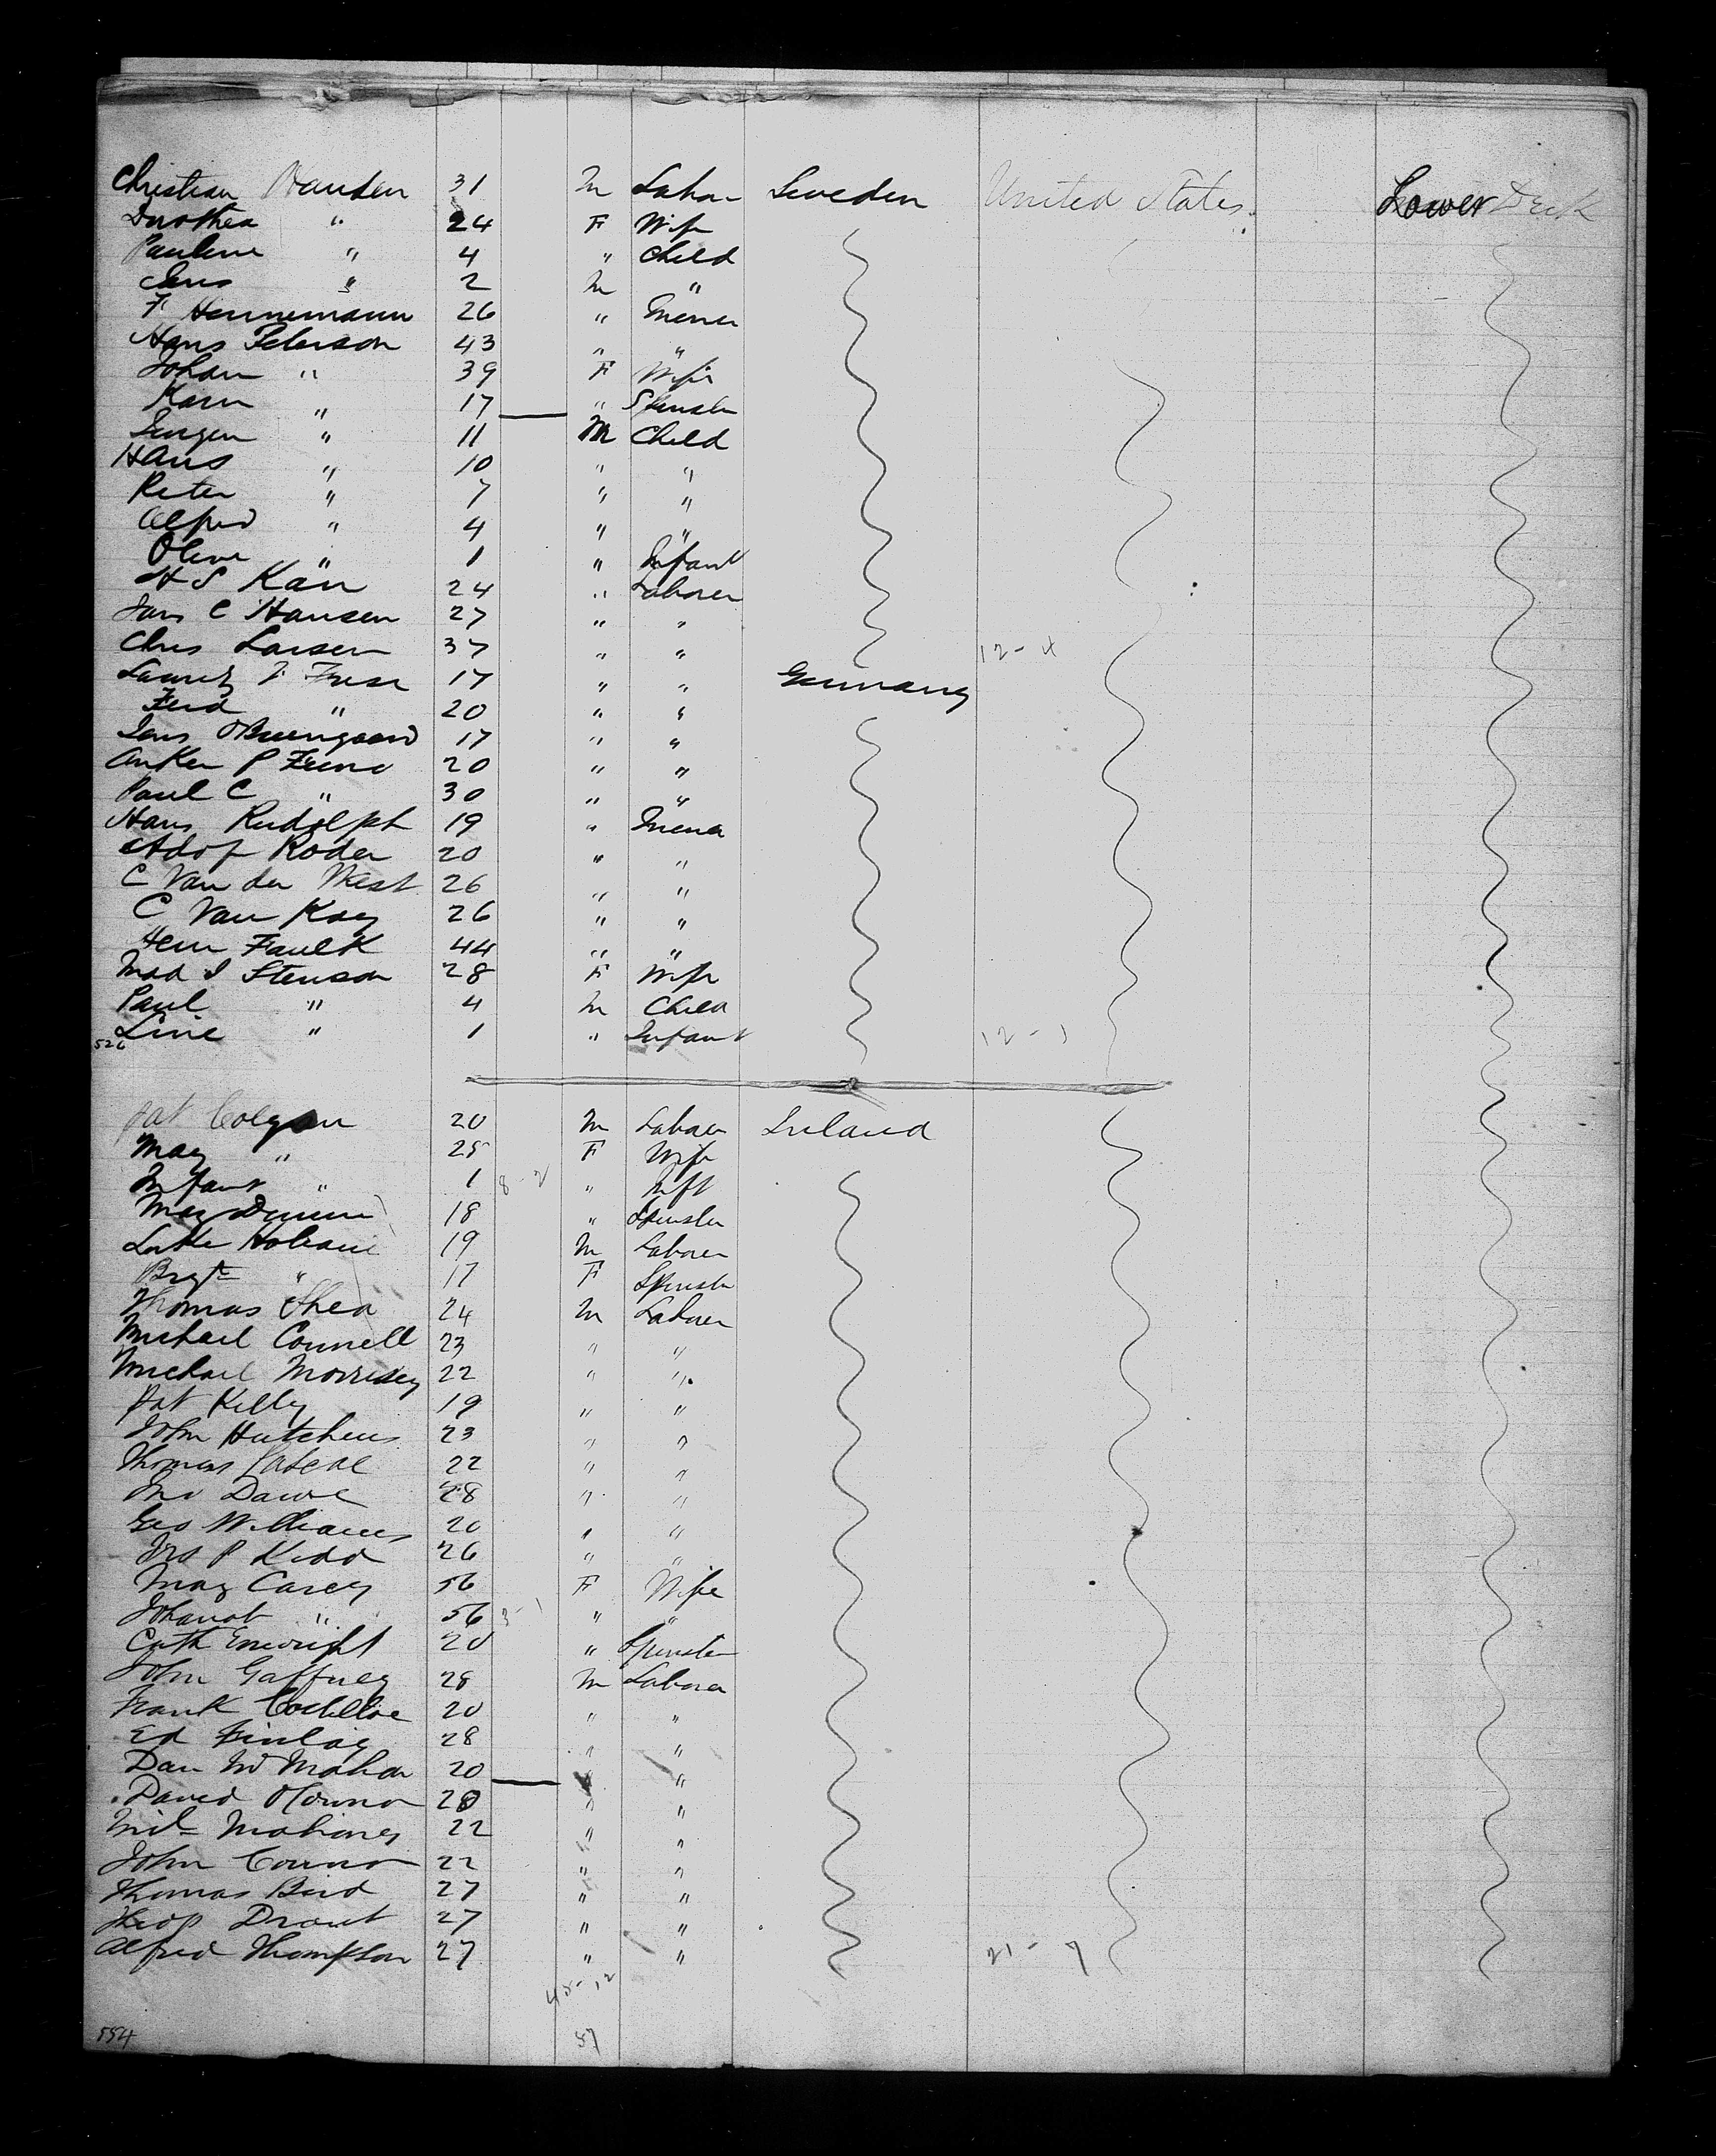 Christian Hansen 31 M Labor Sweden United States Lower Deck
Dorothea " 24 F Wife
Pauline " 4 " Child
Jens " 2 M "
F Hennemann 26 " Miner
Hans Peterson 43 " "
Johan " 39 F Wife
Karn " 17 " Spinster
Jurgen " 11 M Child
Hans " 10 " "
Peter " 7 " "
Alfred " 4 " "
Oliver " 1 " Infant
H S Karr 24 " Laborer
Jans C Hansen 27 " "
Chris Larsen 37 " " 12-4
Lauretz F Frese 17 " " Germany
Ferd " 20 " "
Jens 17 " "
Anker P 20 " "
Paul C " 30 " "
Hans Rudolph 19 " Miner
Adof Roder 20 " "
C Van der West 26 " "
C Van Kay 26 " "
Hem Faulk 44 " "
Mad I Stenson 28 F Wife
Paul " 4 M Child
Line " 1 " Infant 12-1
526
Pat Colgan 20 M Laborer Ireland
May " 25 F Wife
Infant " 1 8-2 " Inft
May 18 " Spinster
Luke 19 M Laborer
Brgt " 17 F Spinster
Thomas Shea 24 M Laborer
Michael Connell 23 " "
Michael Morrisey 22 " "
Pat Kelly 19 " "
John Hutchens 23 " "
Thomas 22 " "
Dawe 28 " "
Geo Williams 20 " "
Jno P Kidd 26 " "
May Carey 56 F Wife
Johanah " 56 3-1 " "
Cath Enwright 20 " Spinster
John Gaffney 28 M Laborer
Frank Costelloe 20 " "
Ed Finlay 28 " "
Dan McMahon 20 " "
David OConnor 20 " "
Mil Mahoney 22 " "
John Connor 22 " "
Thomas Bird 27 " "
Theop Drout 27 " "
Alfred Thompson 27 " " 21-7
45-12
554 57